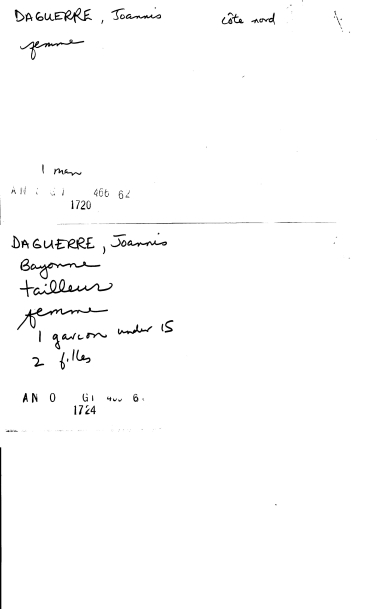 DAGUERRE, Joannis côte nord
femme
1 man
AN G1 466 62
1720
DAGUERRE, Joannis
Bayonne
tailleur
femme
1 garcon under 15
2 filles
AN O G1 6
1724